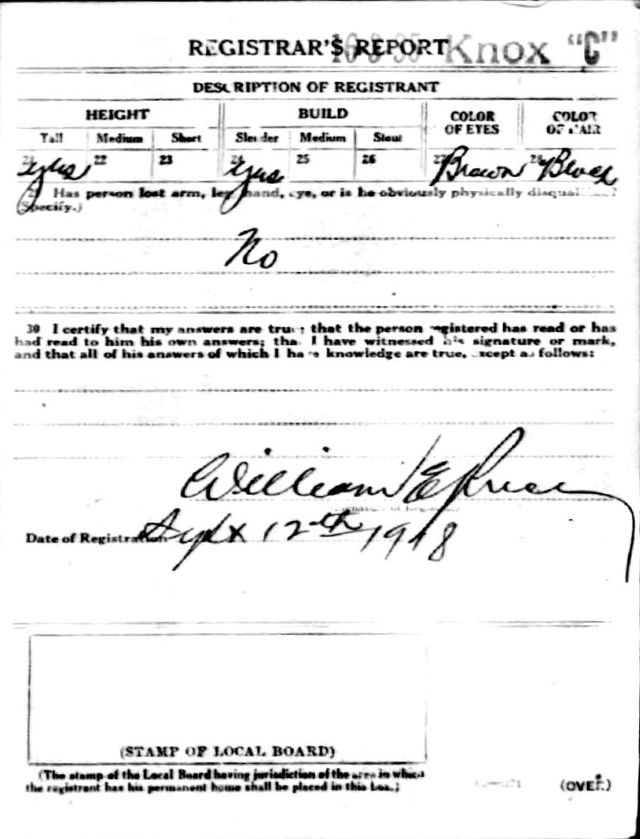 REGISTRAR'S REPORT Knox "C"
DESCRIPTION OF REGISTRANT
HEIGHT BUILD COLOR OF EYES COLOR OF HAIR
Tall Medium Short Slender Medium Stout
21 Yes 22 23 24 Yes 25 26 27 Brown 28 Black
29 Has person lost arm, leg, hand, eye, or is he obviously physically disqualified?
(Specify.)
No
30 I certify that my answers are true; that the person registered has read or has
had read to him his own answers; that I have witnessed his signature or mark,
and that all of his answers of which I have knowledge are true, except as follows:
William E
Date of Registration Sept 12th 1918
(STAMP OF LOCAL BOARD)
(The stamp of the Local Board having jurisdiction of the area in which
the registrant has his permanent home shall be placed in this box.)
(OVER.)